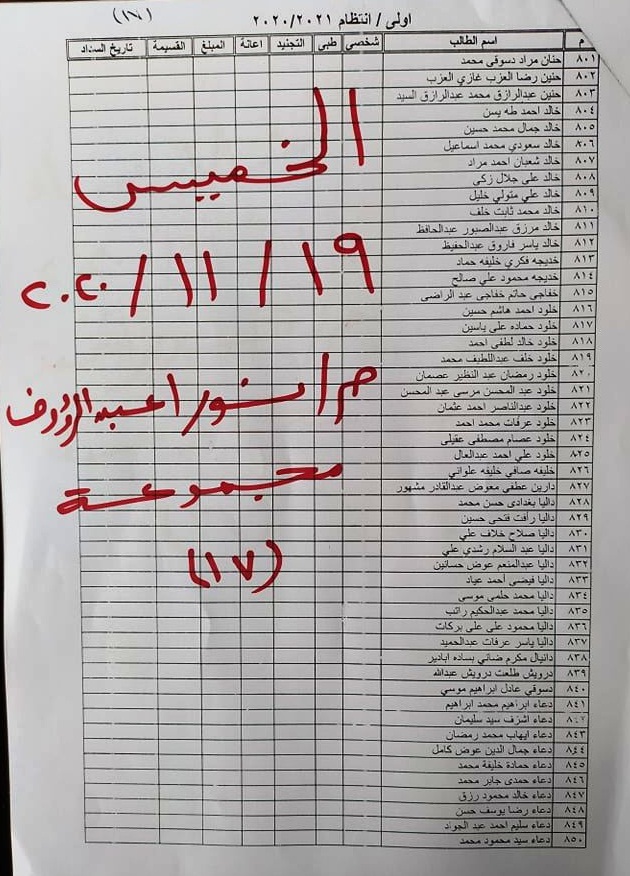 اولى / انتظام ٢٠٢٠/٢٠٢١ (١٧)
م اسم الطالب شخصى طبى التجنيد اعانة المبلغ القسيمة تاريخ السداد
٨٠١ حنان مراد دسوقي محمد
٨٠٢ حنين رضا العزب غازي العزب
٨٠٣ حنين عبدالرازق محمد عبدالرازق السيد
٨٠٤ خالد احمد طه يسن
٨٠٥ خالد جمال محمد حسين
٨٠٦ خالد سعودي محمد اسماعيل
٨٠٧ خالد شعبان احمد مراد
٨٠٨ خالد على جلال زكى
٨٠٩ خالد علي متولي خليل
٨١٠ خالد محمد ثابت خلف
٨١١ خالد مرزق عبدالصبور عبدالحافظ
٨١٢ خالد ياسر فاروق عبدالحفيظ
٨١٣ خديجة فكري خليفه حماد
٨١٤ خديجه محمود علي صالح
٨١٥ خفاجى حاتم خفاجى عبد الراضى
٨١٦ خلود احمد هاشم حسين
٨١٧ خلود حماده على ياسين
٨١٨ خلود خالد لطفى احمد
٨١٩ خلود خلف عبداللطيف محمد
٨٢٠ خلود رمضان عبد النظير عصمان
٨٢١ خلود عبد المحسن مرسى عبد المحسن
٨٢٢ خلود عبدالناصر احمد عثمان
٨٢٣ خلود عرفات محمد احمد
٨٢٤ خلود عصام مصطفى عقيلى
٨٢٥ خلود علي احمد عبدالعال
٨٢٦ خليفه صافي خليفه علواني
٨٢٧ دارين عطفي معوض عبدالقادر مشهور
٨٢٨ داليا بغدادى حسن محمد
٨٢٩ داليا رأفت فتحى حسين
٨٣٠ داليا صلاح خلاف علي
٨٣١ داليا عبد السلام رشدي علي
٨٣٢ داليا عبدالمنعم عوض حسانين
٨٣٣ داليا فيضى أحمد عياد
٨٣٤ داليا محمد حلمى موسى
٨٣٥ داليا محمد عبدالحكيم راتب
٨٣٦ داليا محمود على على بركات
٨٣٧ داليا ياسر عرفات عبدالحميد
٨٣٨ دانيال مكرم ضاني بساده ابادير
٨٣٩ درويش طلعت درويش عبدالله
٨٤٠ دسوقي عادل ابراهيم موسي
٨٤١ دعاء ابراهيم محمد ابراهيم
٨٤٢ دعاء اشرف سيد سليمان
٨٤٣ دعاء ايهاب محمد رمضان
٨٤٤ دعاء جمال الدين عوض كامل
٨٤٥ دعاء حمادة خليفة محمد
٨٤٦ دعاء حمدى جابر محمد
٨٤٧ دعاء خالد محمود رزق
٨٤٨ دعاء رضا يوسف حسن
٨٤٩ دعاء سليم احمد عبد الجواد
٨٥٠ دعاء سيد محمود محمد
الخميس
١٩ / ١١ / ٢٠٢٠
م / نورا عبد الرؤوف
مجموعة
(١٧)